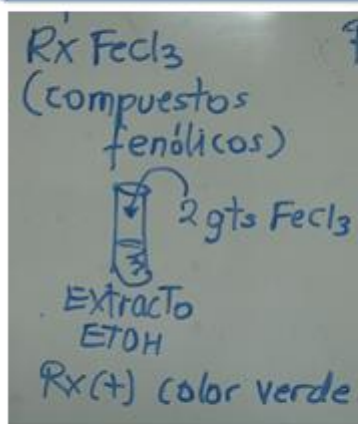 Rx FeCl3
(compuestos
fenólicos)
2 gts FeCl3
Extracto
ETOH
Rx(+) color verde